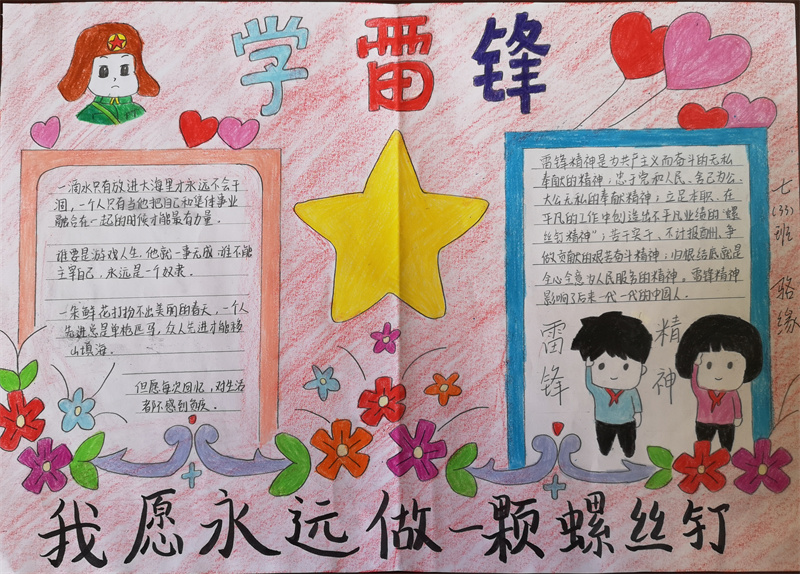 学雷锋
一滴水只有放进大海里才永远不会干
涸，一个人只有当他把自己和集体事业
融合在一起的时候才能最有力量。
谁要是游戏人生，他就一事无成，谁不能
主宰自己，永远是一个奴隶。
一朵鲜花打扮不出美丽的春天，一个人
先进总是单枪匹马，众人先进才能移
山填海。
但愿每次回忆，对生活
都不感到负疚。
雷锋精神是为共产主义而奋斗的无私
奉献的精神；忠于党和人民、舍己为公、
大公无私的奉献精神；立足本职、在
平凡的工作中创造出不平凡业绩的“螺
丝钉精神”；苦干实干、不计报酬、争
做贡献的艰苦奋斗精神；归根结底就是
全心全意为人民服务的精神。雷锋精神
影响了后来一代一代的中国人。
雷锋
精神
七(33)班 骆缘
我愿永远做一颗螺丝钉